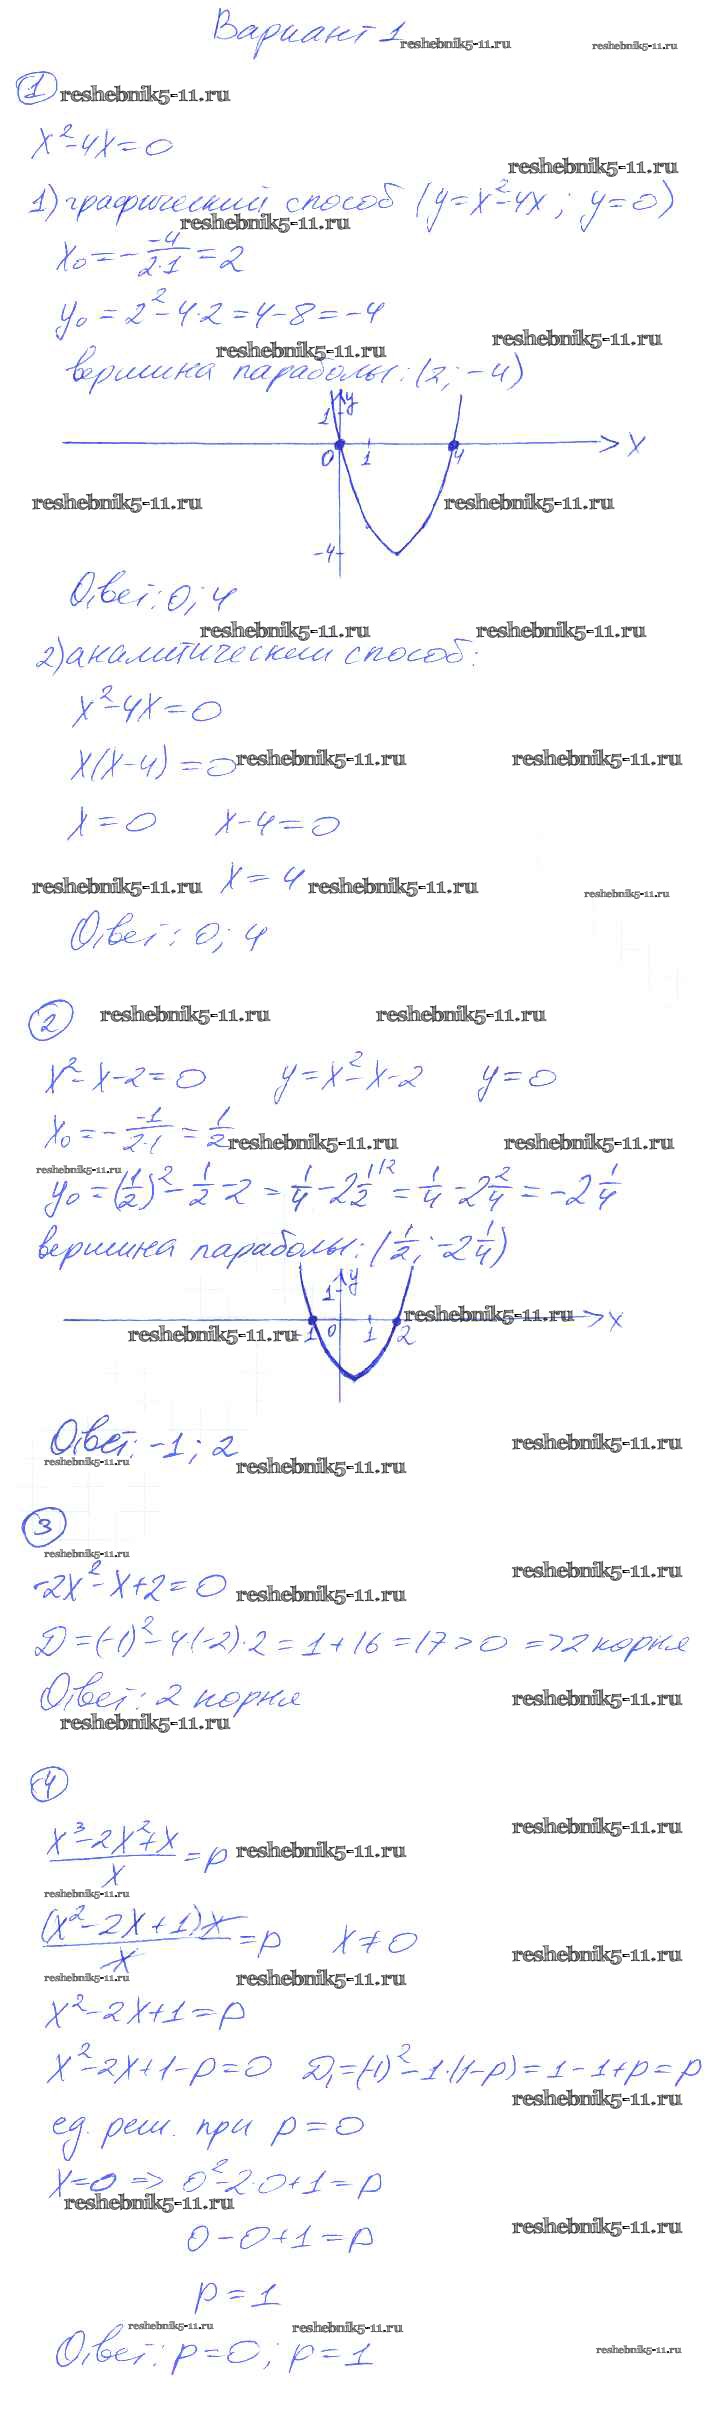 Вариант 1 reshebnik5-11.ru reshebnik5-11.ru
1 reshebnik5-11.ru
x²-4x=0
reshebnik5-11.ru
1) графический способ (y=x²-4x; y=0)
reshebnik5-11.ru
x₀=-\frac{-4}{2·1}=2
y₀=2²-4·2=4-8=-4
reshebnik5-11.ru reshebnik5-11.ru
вершина параболы: (2; -4)
1 y
0 1 4 x
reshebnik5-11.ru reshebnik5-11.ru
-4
Ответ: 0; 4
reshebnik5-11.ru reshebnik5-11.ru
2) аналитический способ:
x²-4x=0
x(x-4)=0 reshebnik5-11.ru reshebnik5-11.ru
x=0 x-4=0
reshebnik5-11.ru x=4 reshebnik5-11.ru reshebnik5-11.ru
Ответ: 0; 4
2 reshebnik5-11.ru reshebnik5-11.ru
x²-x-2=0 y=x²-x-2 y=0
x₀=-\frac{-1}{2·1}=\frac{1}{2} reshebnik5-11.ru reshebnik5-11.ru
reshebnik5-11.ru
y₀=(\frac{1}{2})²-\frac{1}{2}-2=\frac{1}{4}-2\frac{1}{2}^{/2}=\frac{1}{4}-2\frac{2}{4}=-2\frac{1}{4}
вершина параболы: (\frac{1}{2}; -2\frac{1}{4})
1 y
reshebnik5-11.ru x
reshebnik5-11.ru -1 0 1 2
Ответ: -1; 2 reshebnik5-11.ru
reshebnik5-11.ru reshebnik5-11.ru
3
reshebnik5-11.ru reshebnik5-11.ru
-2x²-x+2=0 reshebnik5-11.ru
D=(-1)²-4·(-2)·2=1+16=17>0 =>2 корня
Ответ: 2 корня reshebnik5-11.ru
reshebnik5-11.ru
4
reshebnik5-11.ru
\frac{x³-2x²+x}{x}=p reshebnik5-11.ru
reshebnik5-11.ru
\frac{(x²-2x+1)x}{x}=p x≠0 reshebnik5-11.ru
reshebnik5-11.ru reshebnik5-11.ru
x²-2x+1=p
x²-2x+1-p=0 D₁=(-1)²-1·(1-p)=1-1+p=p
reshebnik5-11.ru
ед. реш. при p=0
x=0 => 0²-2·0+1=p
reshebnik5-11.ru
0-0+1=p reshebnik5-11.ru
p=1
reshebnik5-11.ru reshebnik5-11.ru
Ответ: p=0; p=1 reshebnik5-11.ru